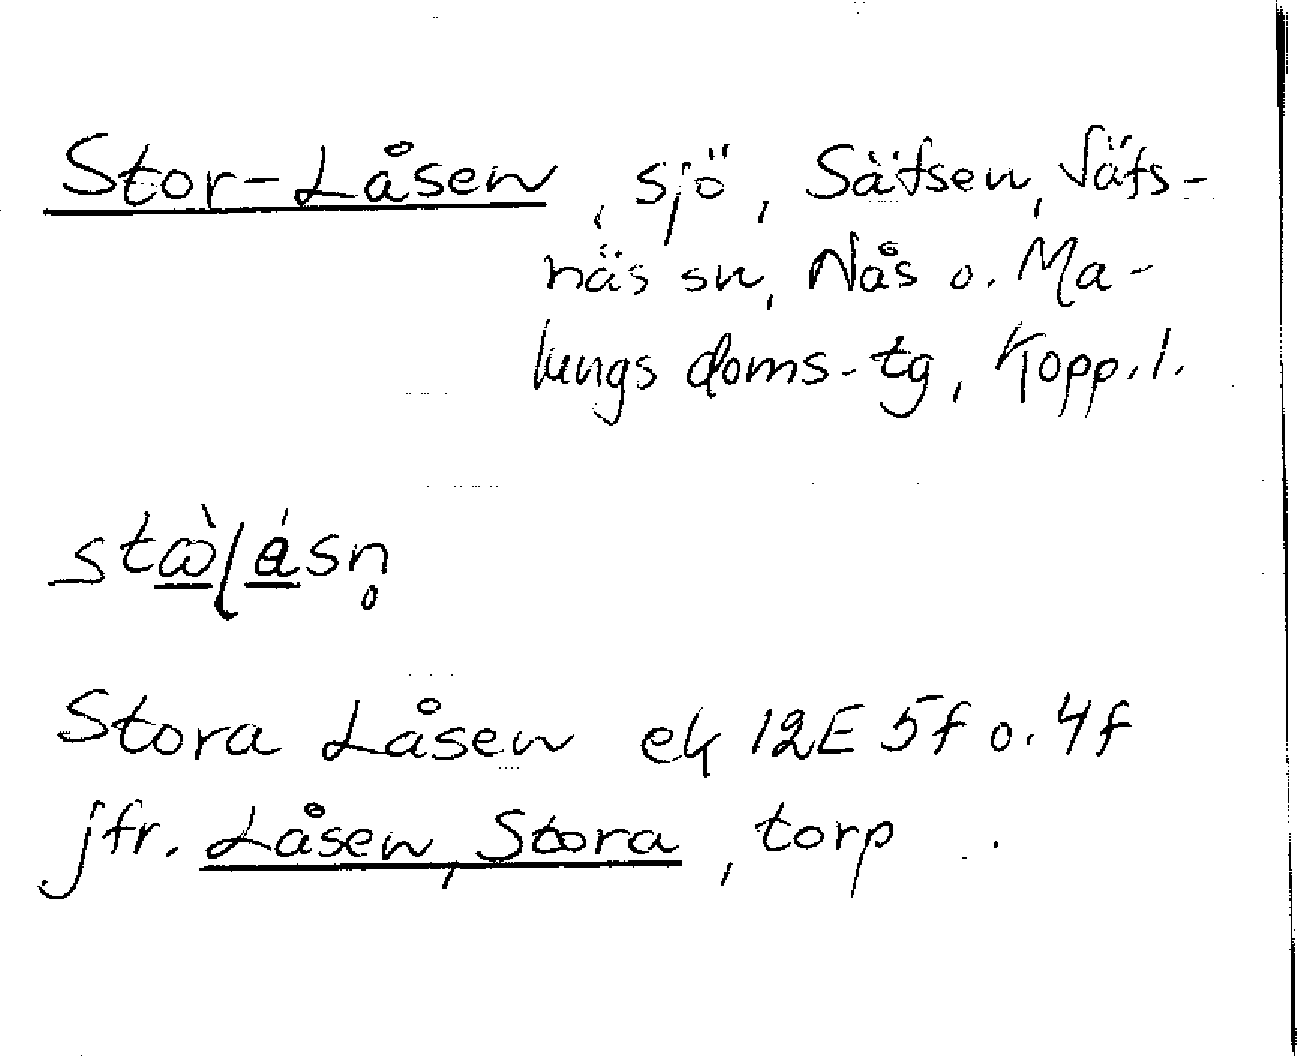 Stor-Låsen, sjö, Säfsen, Säfs-
näs sn, Nås o. Ma-
lungs doms-tg, Kopp. l.
Stora Låsen ek 12E 5f o. 4f
jfr. Låsen, Stora, torp